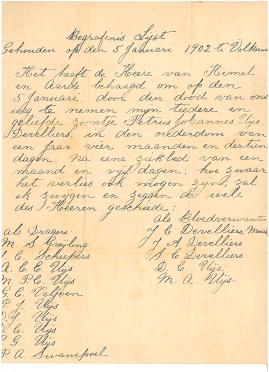 Begrafenis Lyst
Gehouden op den 5 Januari 1902 te Volksrust
Het heeft de Heere van Hemel
en Aarde behaagd om op den
5 Januari door den dood van ons
weg te nemen myn tedere en
geliefde zoontje Petrus Johannes Uys
Develliers, in den ouderdom van
een jaar vier maanden en dertien
dagen. Na eene ziekbed van een
maand en vyf dagen; hoe zwaar
het verlies ook mogen zyn, zal
ik zwygen en zeggen de wele
des Heeren geschiede;
als Bloedverwanten
als Dragers.
J C Devilliers,
M S Greyling
J A Devilliers
C Scheepers
S C Devilliers
A. C. E. Uys
D. C. Uys,
M P C Uys
M. A. Uys.
G. C. Veljoen
P J Uys
Uys
C Uys
G Uys
P A Swanepoel